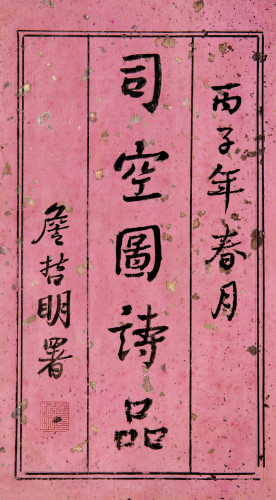 丙子年春月
司空圖詩品
詹哲明署